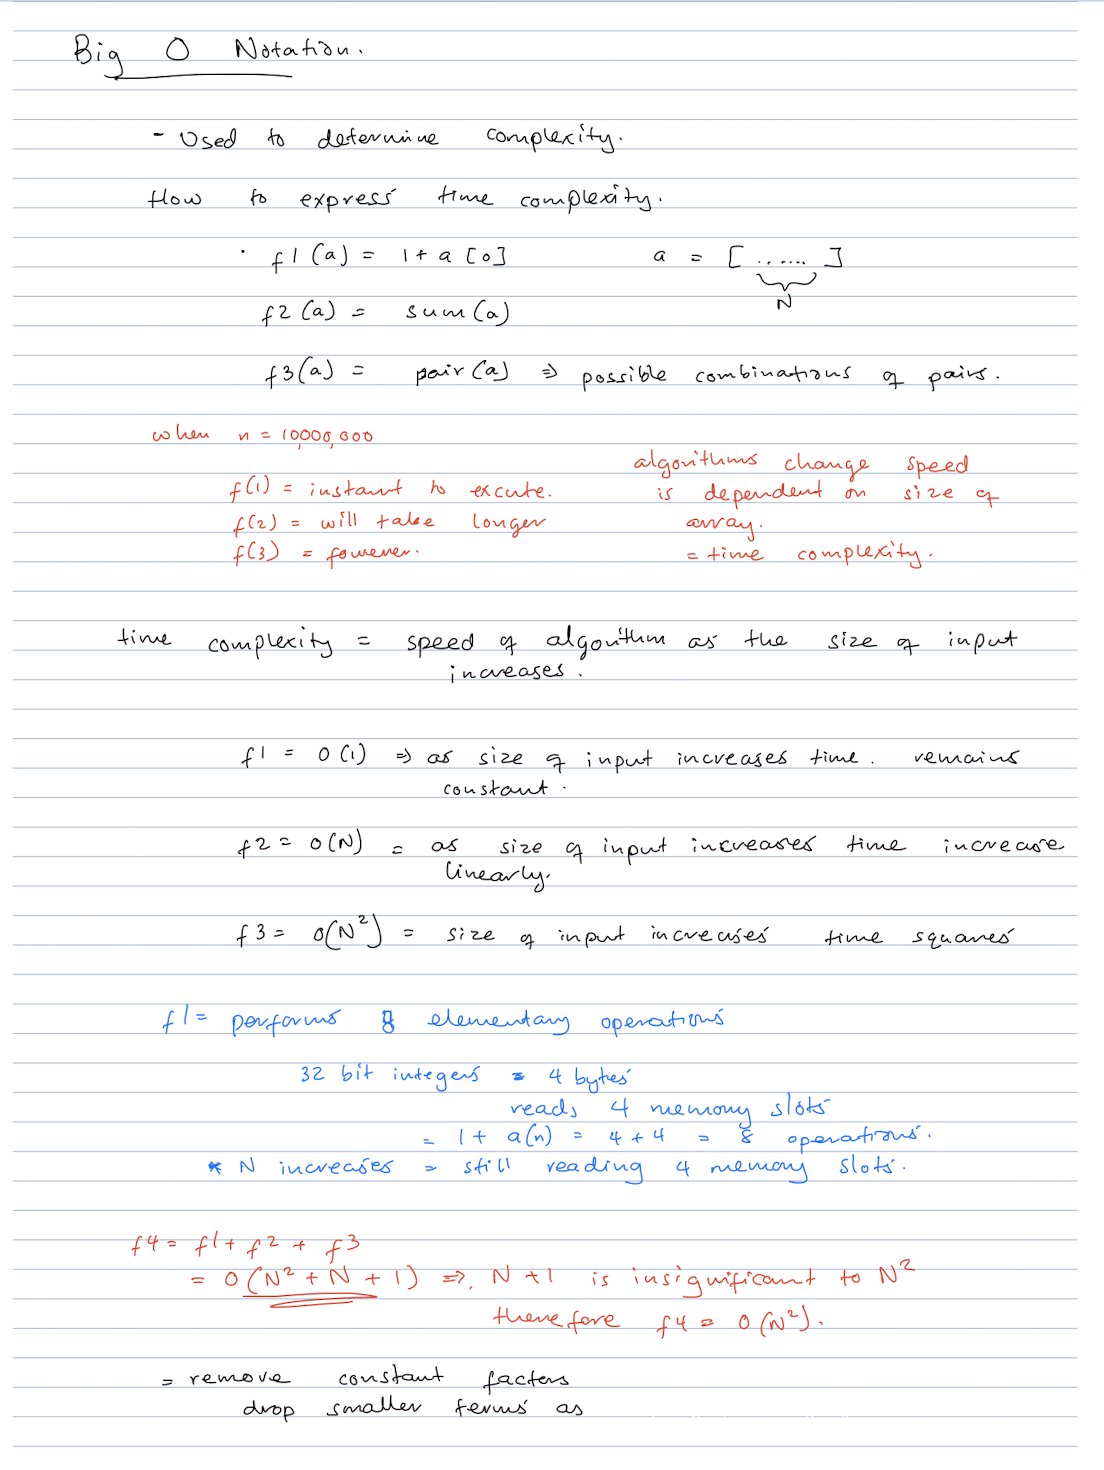 Big O Notation.
- Used to determine complexity.
How to express time complexity.
· f1(a) = 1 + a[0] a = [ ...... ]
N
f2(a) = sum(a)
f3(a) = pair(a) => possible combinations of pairs.
when n = 10,000,000
algorithms change speed
f(1) = instant to excute. is dependent on size of
f(2) = will take longer array.
f(3) = forever. = time complexity.
time complexity = speed of algorithm as the size of input
increases.
f1 = O(1) => as size of input increases time. remains
constant.
f2 = O(N) = as size of input increases time increase
linearly.
f3 = O(N²) = size of input increases time squares
f1 = performs 8 elementary operations
32 bit integers = 4 bytes
reads 4 memory slots
= 1 + a(n) = 4 + 4 = 8 operations.
* N increases = still reading 4 memory slots.
f4 = f1 + f2 + f3
= O(N² + N + 1) => N + 1 is insignificant to N²
therefore f4 = O(N²).
= remove constant factors
drop smaller terms as